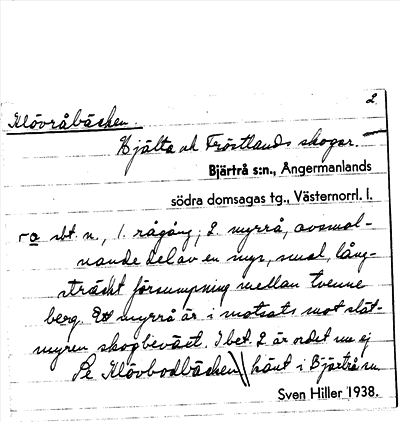 2.
Klövråbäcken.
Hjälta ok Fröstlands skogar.
Bjärtrå s:n., Ångermanlands
södra domsagas tg., Västernorrl. l.
-rå sbt. n., 1. rågång; 2. myrrå, avsmal-
nande del av en myr, smal, lång-
sträckt försumpning mellan tvenne
berg. Ett myrrå är i motsats mot slåt-
myren skogbeväxt. I bet. 2 är ordet nu ej
Se Klövbodbäcken känt i Bjärtrå sn.
Sven Hiller 1938.